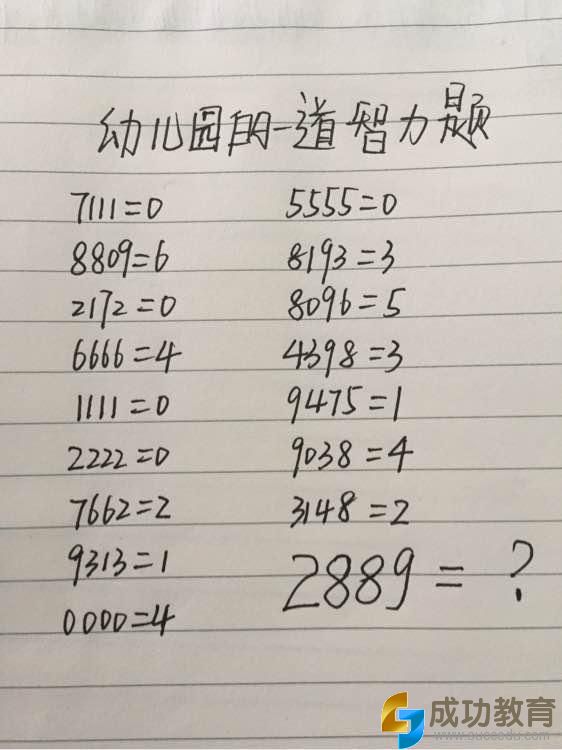 幼儿园的一道智力题
7111=0 5555=0
8809=6 8193=3
2172=0 8096=5
6666=4 4398=3
1111=0 9475=1
2222=0 9038=4
7662=2 3148=2
9313=1 2889=?
0000=4
成功教育
www.succedu.com